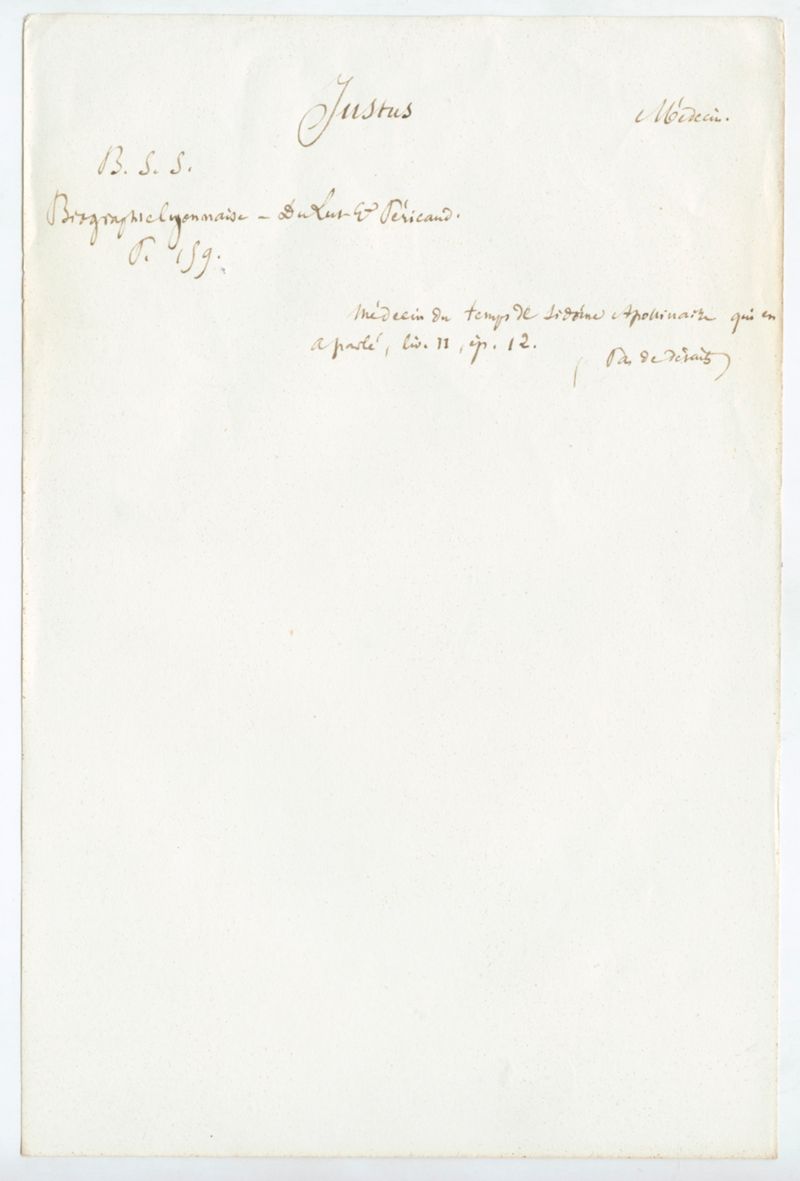 Justus
Médecin.
B. S. S.
Biographie lyonnaise - Du Lut & Péricaud.
P. 159.
Médecin du temps de Sidoine Apollinaire qui en
a parlé, liv. II, ép. 12.
( Pas de détails )